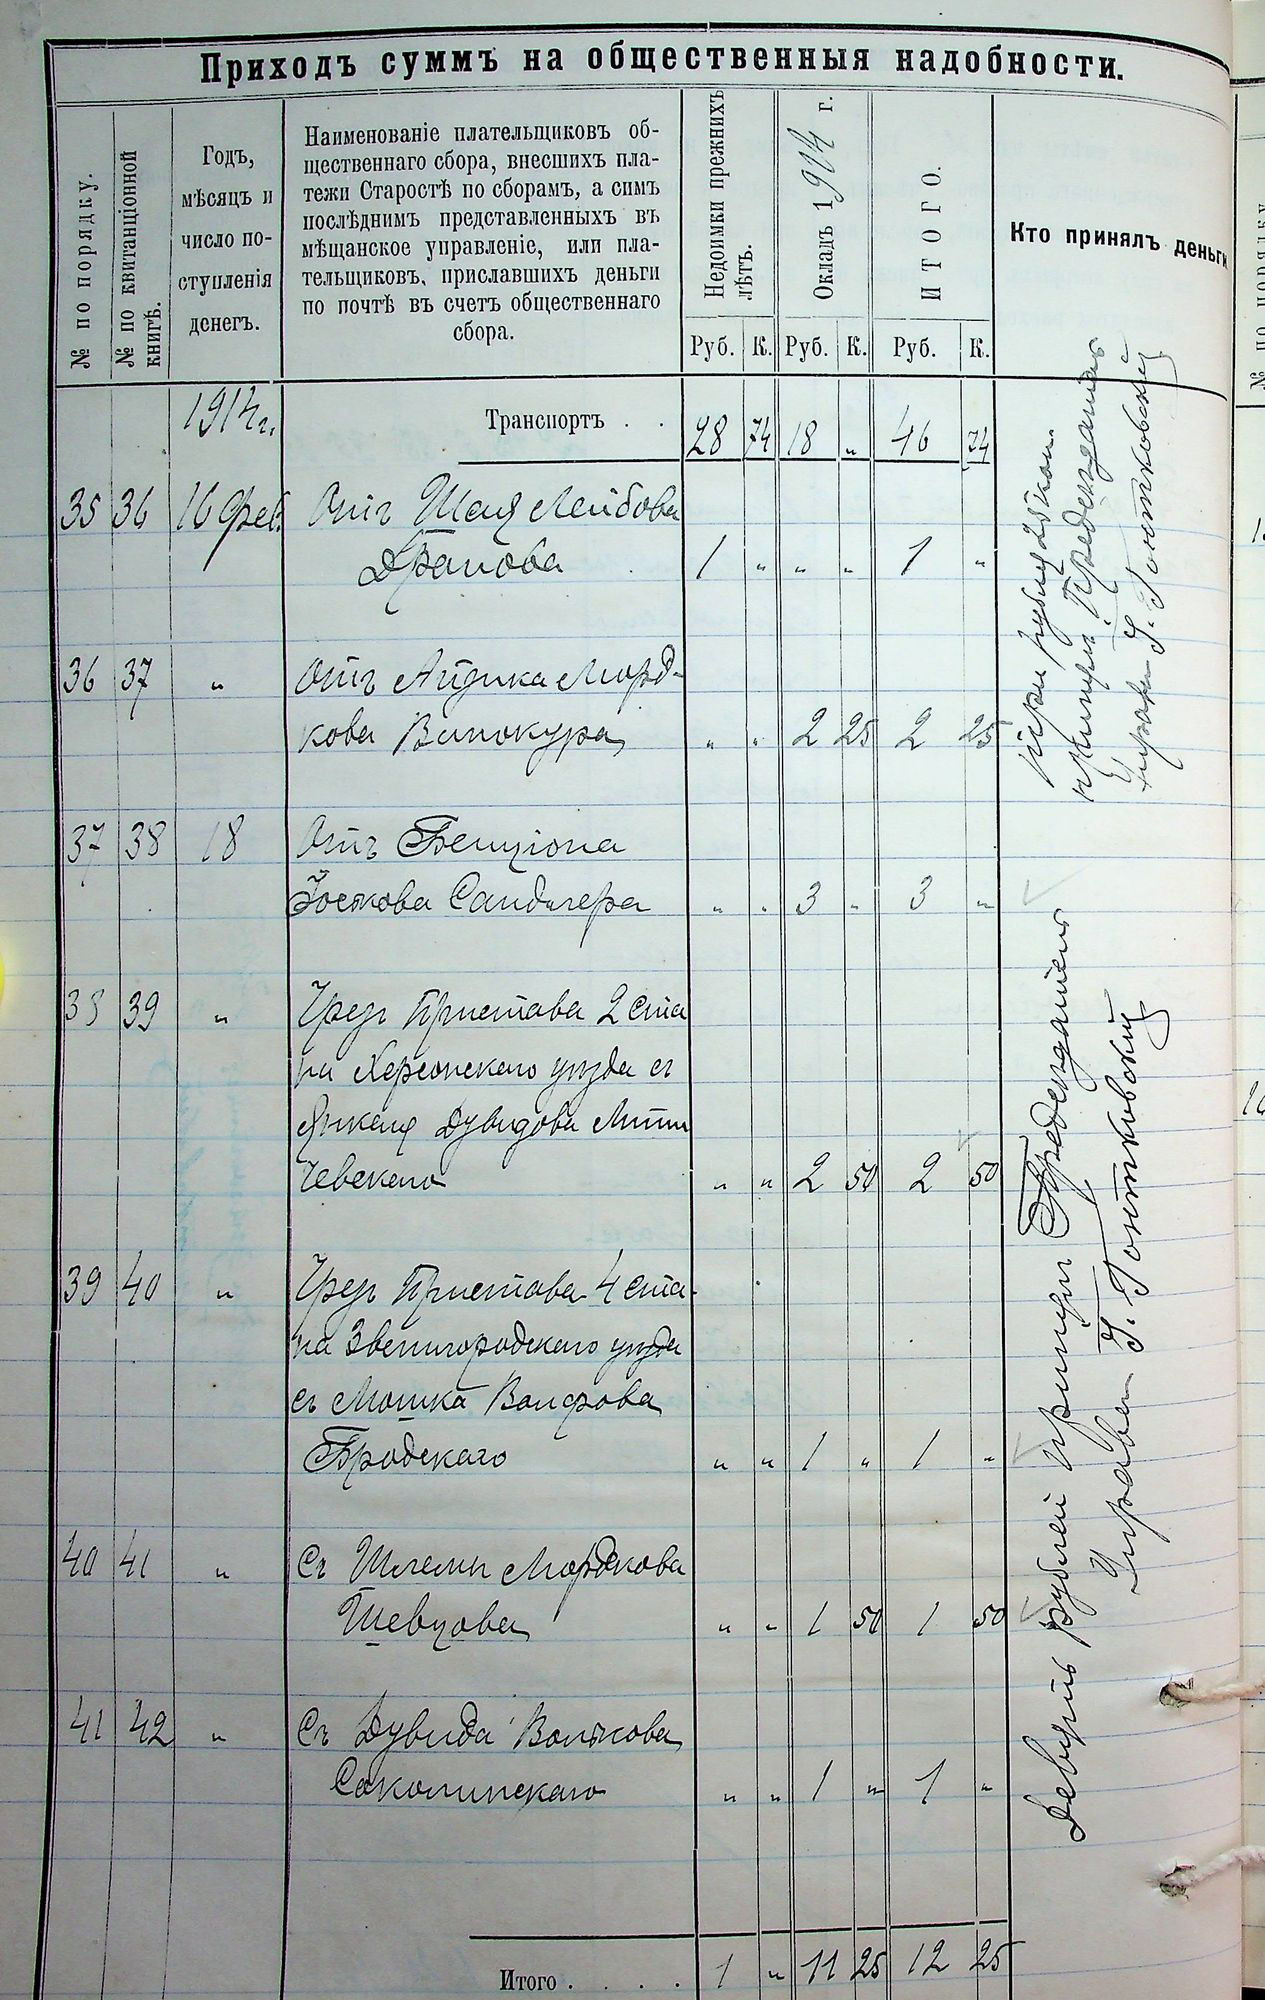 Приходъ суммъ на общественныя надобности.
№ по порядку.
№ по квитанціонной
книгѣ.
Годъ,
мѣсяцъ и
число по-
ступленія
денегъ.
Наименованіе плательщиковъ об-
щественнаго сбора, внесшихъ пла-
тежи Старостѣ по сборамъ, а симъ
послѣднимъ представленныхъ въ
мѣщанское управленіе, или пла-
тельщиковъ, приславшихъ деньги
по почтѣ въ счетъ общественнаго
сбора.
Недоимки прежнихъ
лѣтъ.
Окладъ 1914 г.
ИТОГО.
Кто принялъ деньги
Руб. К. Руб. К. Руб. К.
1914 г. Транспортъ . . 28 74 18 „ 46 74
35 36 16 Фев. Отъ Шая Лейбова
Драпова 1 „ „ „ 1 „
36 37 „ Отъ Айзика Морд-
кова Винокура „ „ 2 25 2 25
три рубля 25 коп.
принялъ Председатель
Управы Г. Гонтковскій
37 38 18 Отъ Бенціона
Іоськова Сандлера „ „ 3 „ 3 „
38 39 „ Чрезъ Пристава 2 ста
на Херсонскаго уезда съ
Янкеля Дувидова Литин
чевскаго „ „ 2 50 2 50
39 40 „ Чрезъ Пристава 4 ста-
на Звенигородскаго уезда
съ Мошка Волфова
Бродскаго „ „ 1 „ 1 „
40 41 „ Съ Шлемы Мордкова
Шевцова „ „ 1 50 1 50
41 42 „ Съ Дувида Волькова
Соколинскаго „ „ 1 „ 1 „
Девять рублей принялъ Председатель
Управы Г. Гонтковскій
Итого . . . . 1 „ 11 25 12 25